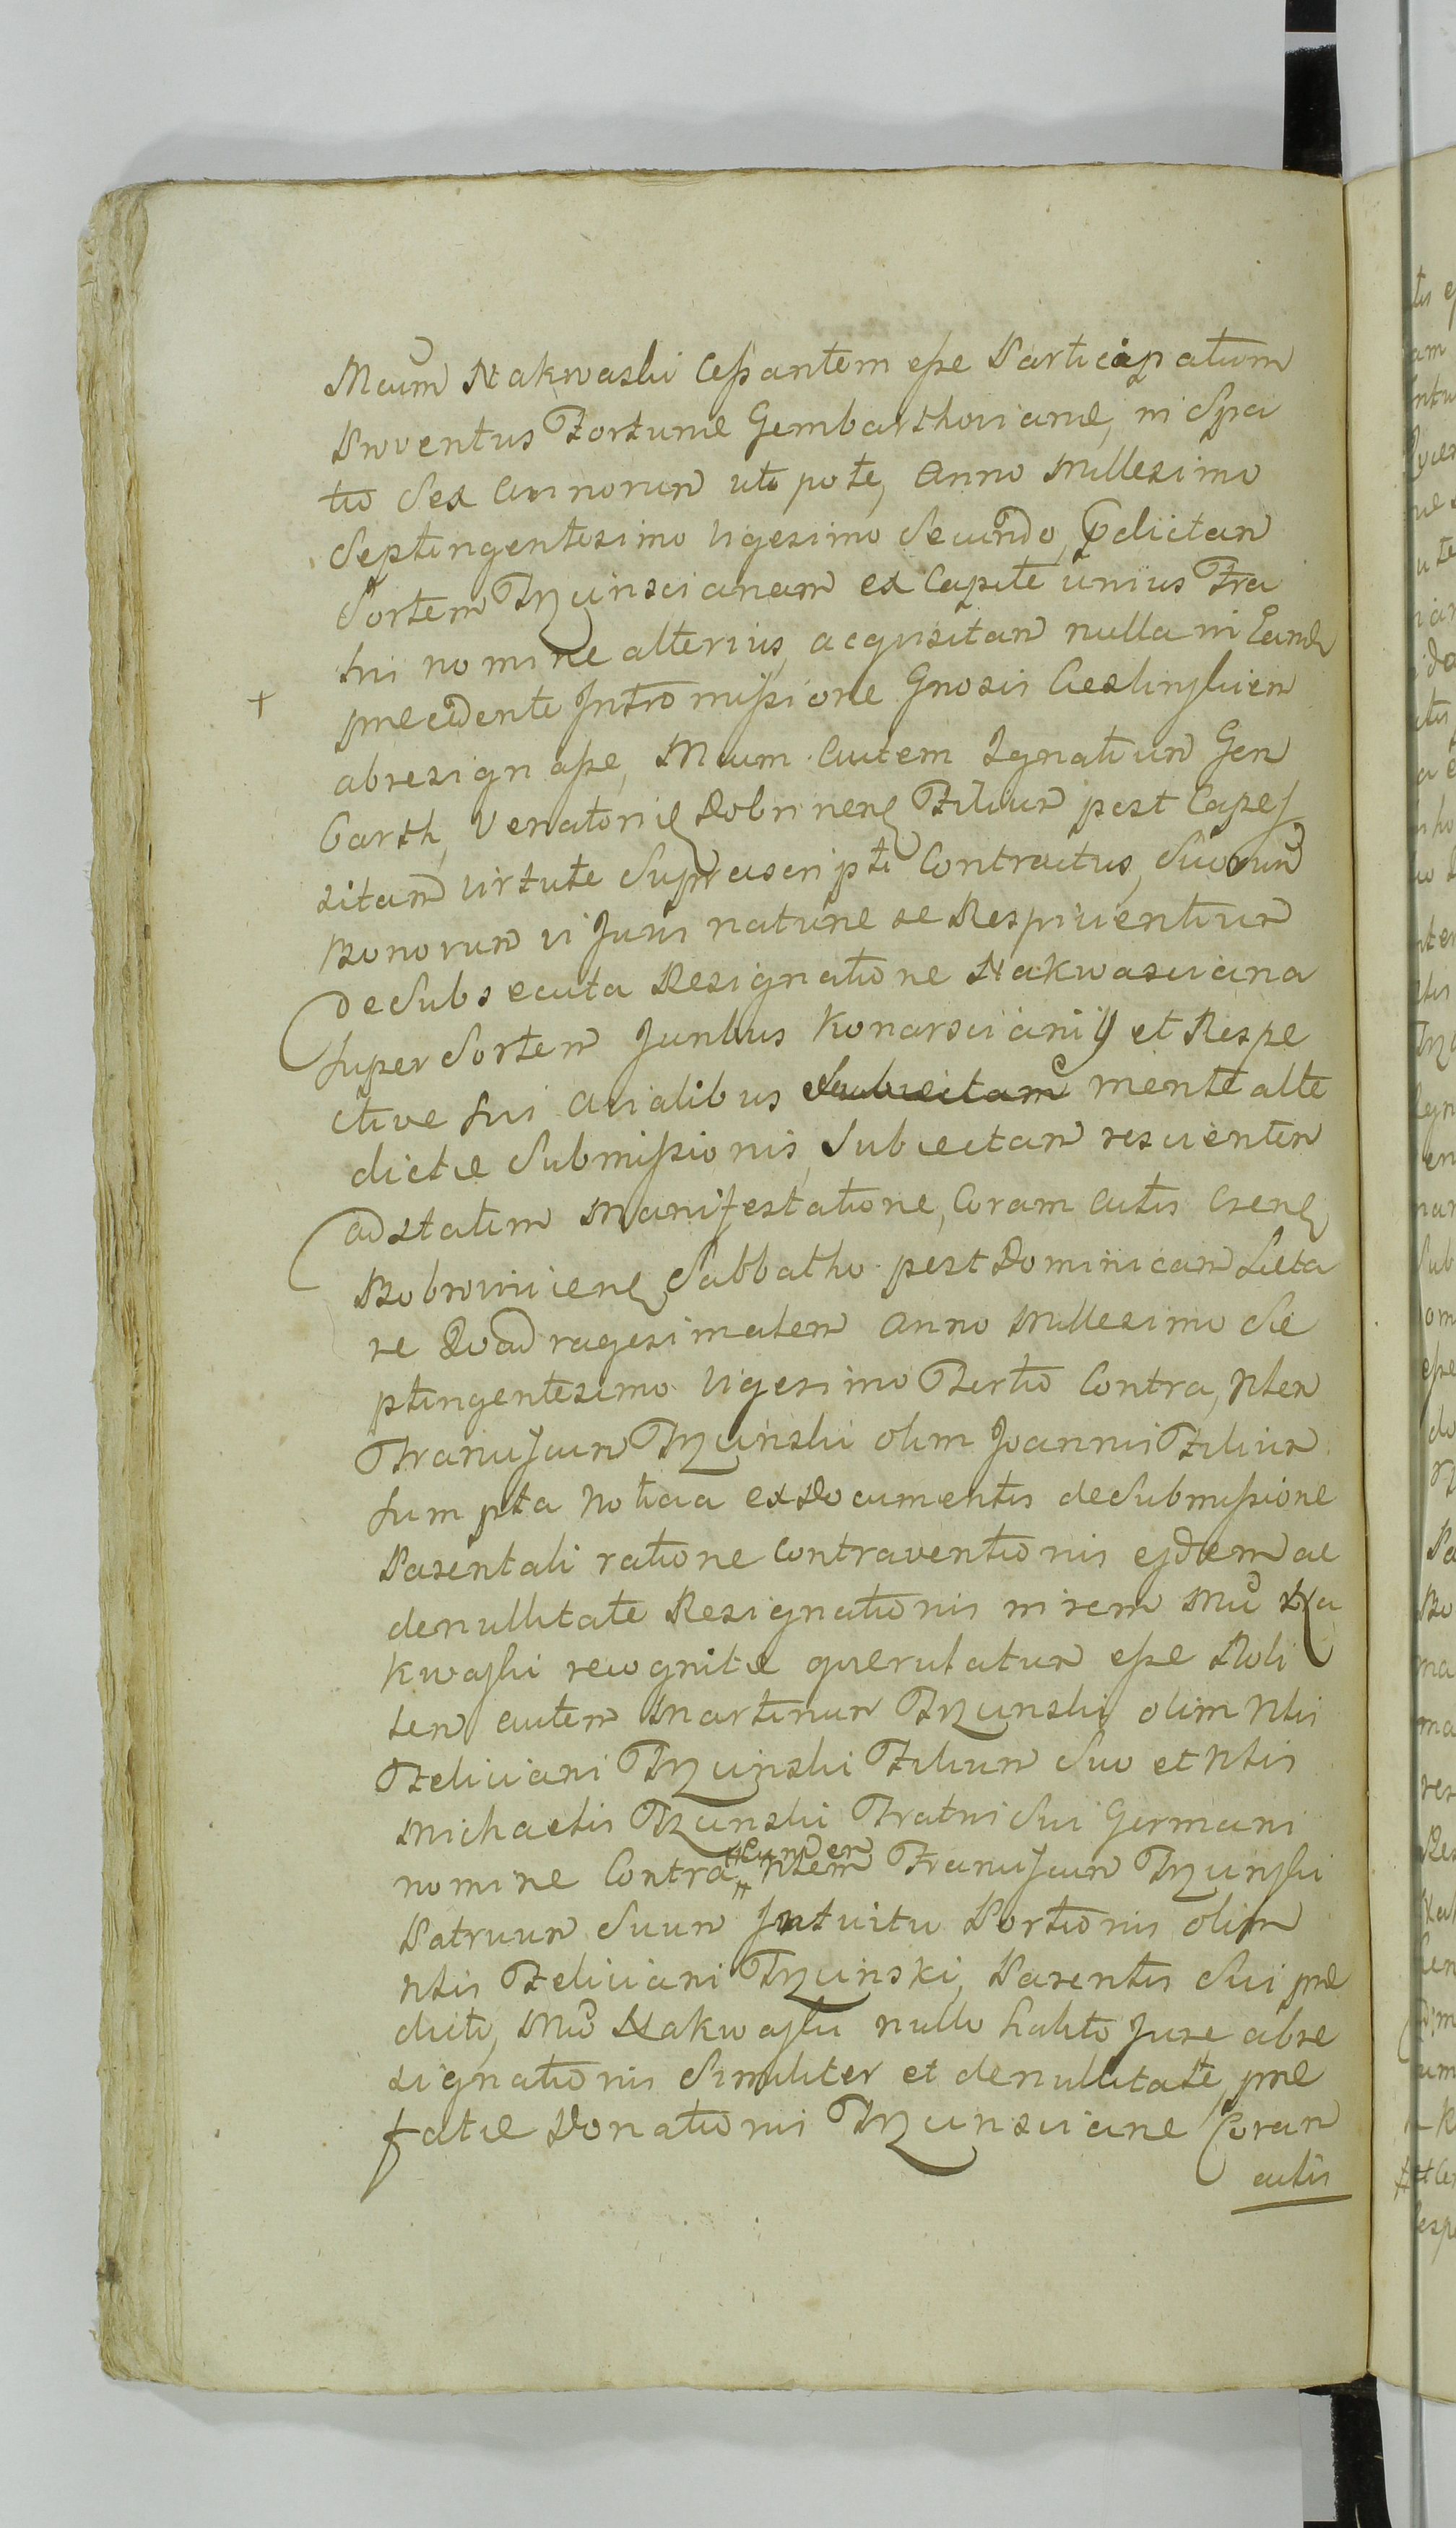 Mcum Nakwaski Cessantem esse Participatum
Proventus Fortunæ Gembarthovianæ, in Spa
tio Sex Annorum uti pote, Anno Millesimo
Septingentesimo Vigesimo Secundo, pdictam
Sortem Trzcinscianam ex Capite unius Fra
tris nomine alterius, acqvisitam nulla in Eande
+ præcedente Intromissione Gnosis
abresignasse, Mcum Autem Ignatium Gem
barth, Venatoris Dobrinens Filium post Capes
sitam virtute Suprascripti Contractus, Suorum
Bonorum vi Juris naturæ se
de Subsecuta Resignatione Nakwasciana
super Sortem Juribus Konarscianis et Respe
ctive sui Avialibus Subiectam mente alte
dictæ Submissionis, Subiectam rescientem
ad statim Manifestatione, Coram Actis Crens
Bobrovnicens Sabbatho post Dominicam Læta
re Qvadragesimalem Anno Millesimo Se
ptingentesimo Vigesimo Tertio Contra, Nlem
Franciscum Trzcinski olim Joannis Filium
sumpta Notitia ex Documentis de Submissione
Parentali ratione Contraventionis ejdem ac
de nullitate Resignationis in rem Mci Na
kwaski recognitæ qverulatum esse Nobi
lem autem Martinum Trzcinski olim Nlis
Feliciani Trzcinski Filium Suo et Nlis
Michaelis Trzcinski Fratris Sui Germani
nomine Contra # Eundem Nlem Franciscum Trzcinski
Patruum Suum Intuitu Portionis olim
Nlis Feliciani Trzcinski, Parentis Sui præ
dicti, Mco Nakwaski nullo habito Jure abre
signationis Similiter et de nullitate, præ
fatæ Donationis Trzcinscianæ Coram
actis